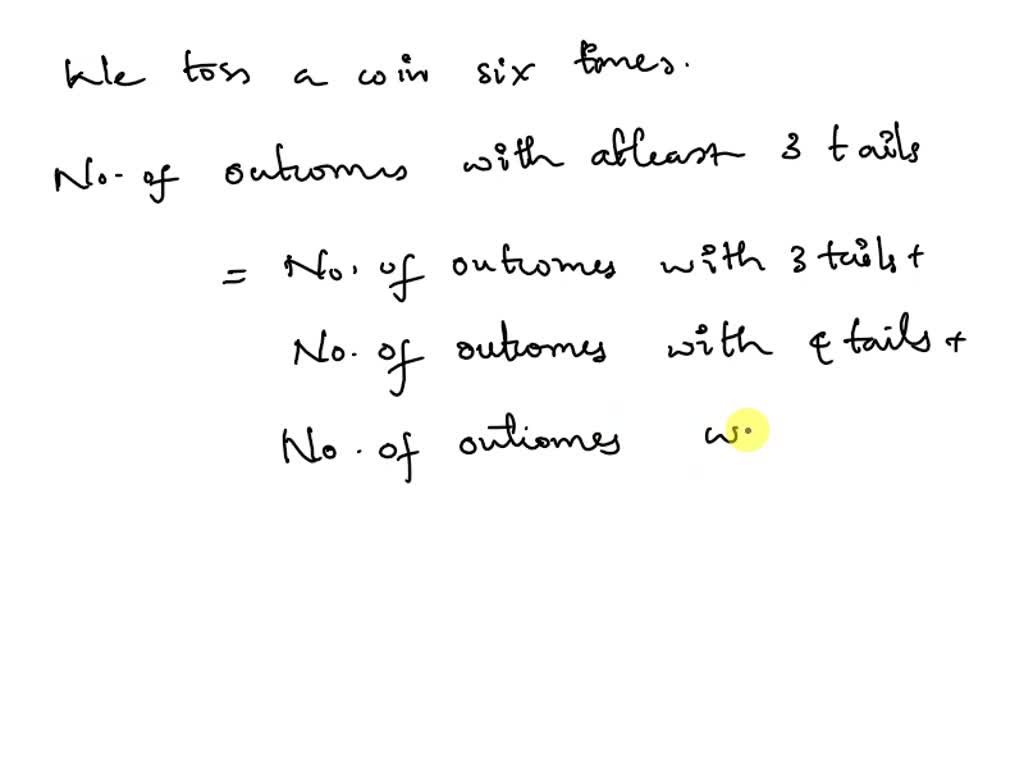 We toss a coin six times.
No. of outcomes with atleast 3 tails
= No. of outcomes with 3 tails +
No. of outcomes with 4 tails +
No. of outcomes w